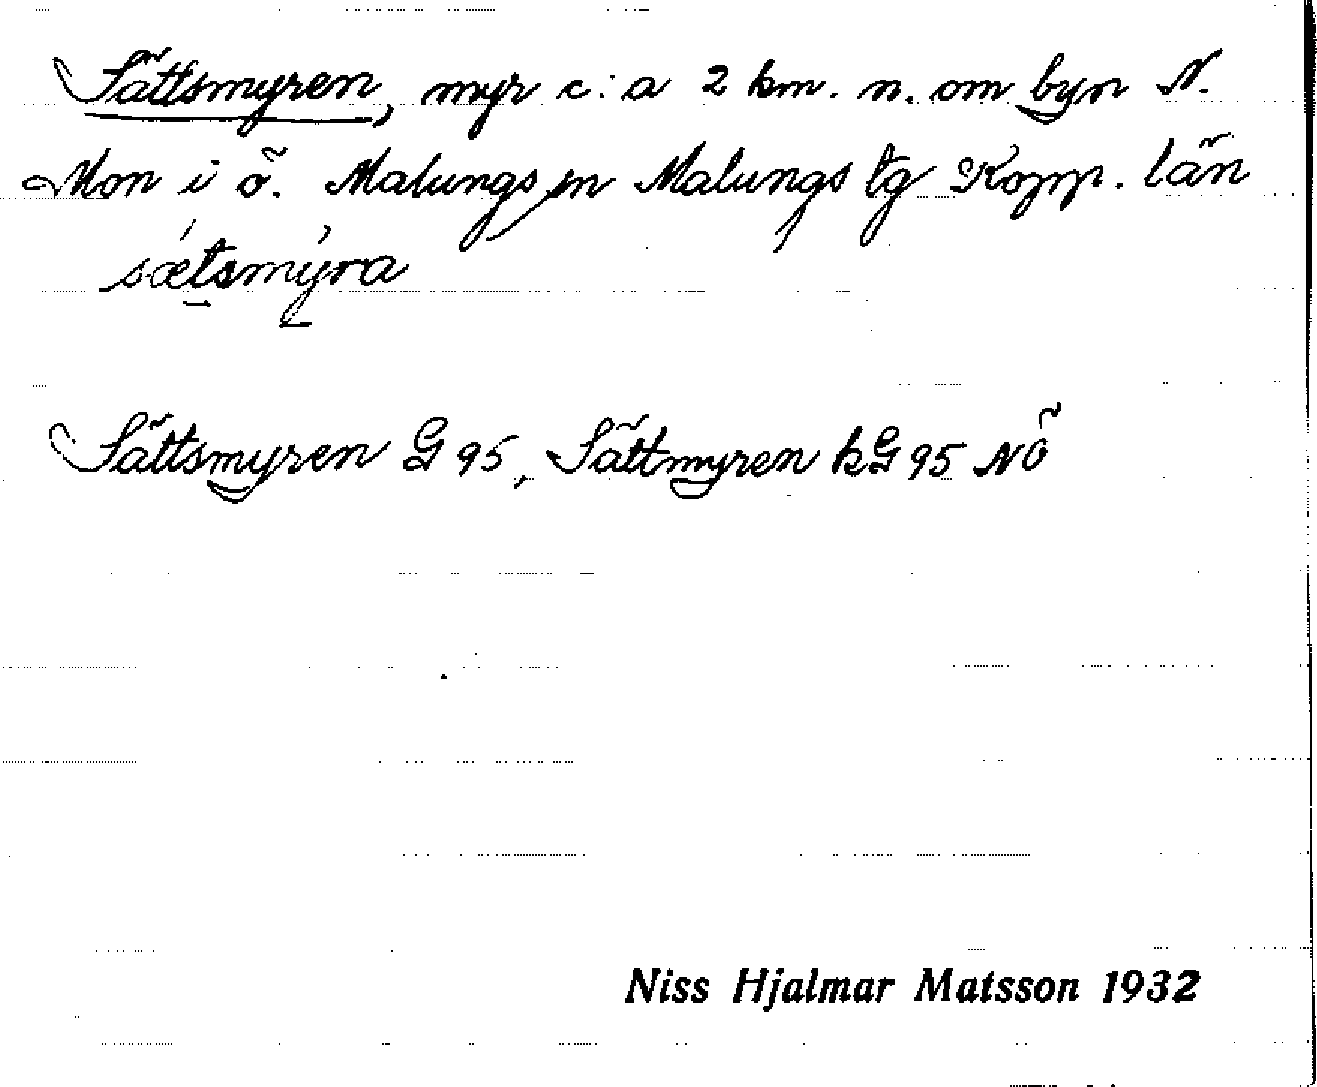 Sättsmyren, myr c:a 2 km. n. om byn N.
Mon i ö. Malungs sn Malungs tg Kopp. län
sætsmyra
Sättsmyren G 95, Sättmyren kG 95 NÖ
Niss Hjalmar Matsson 1932